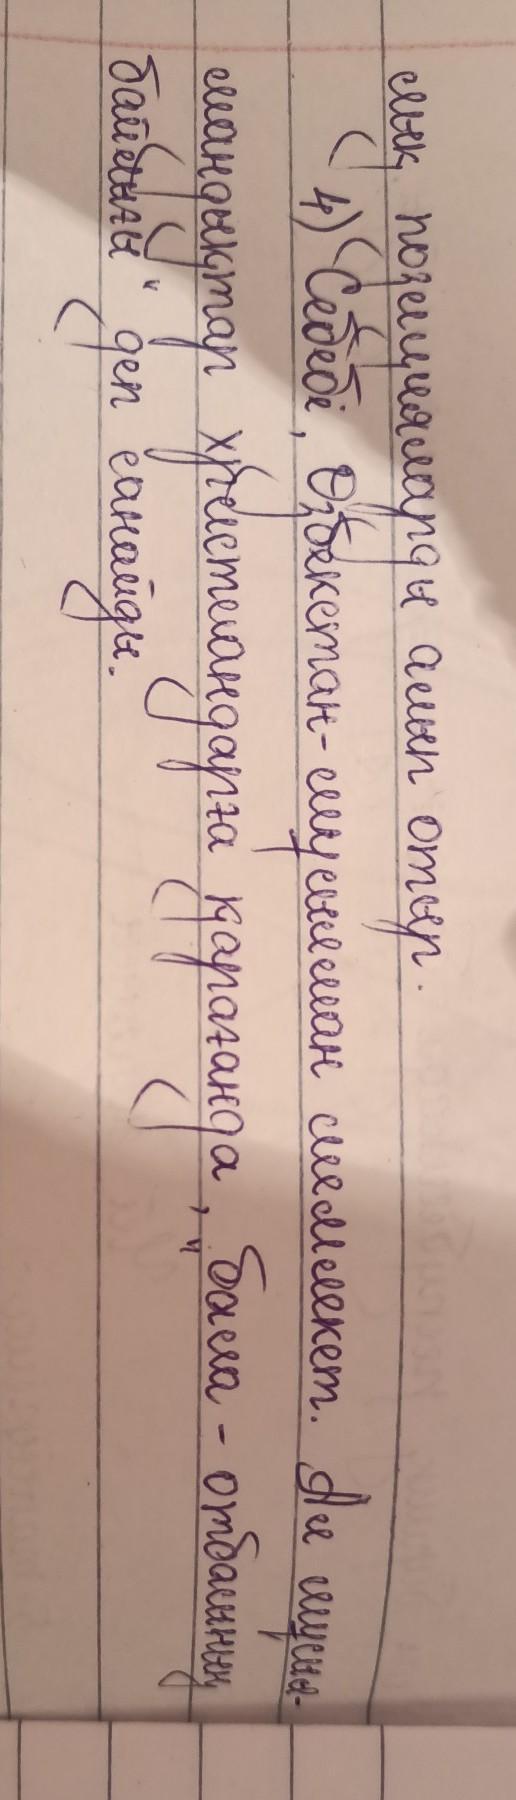 лық позицияларды алып отыр.
4) Себебі, Өзбекстан-мұсылман мемлекет. Ал мұсыл-
мандықтар христиандарға қарағанда, "бала - отбасының
байлығы" деп санайды.